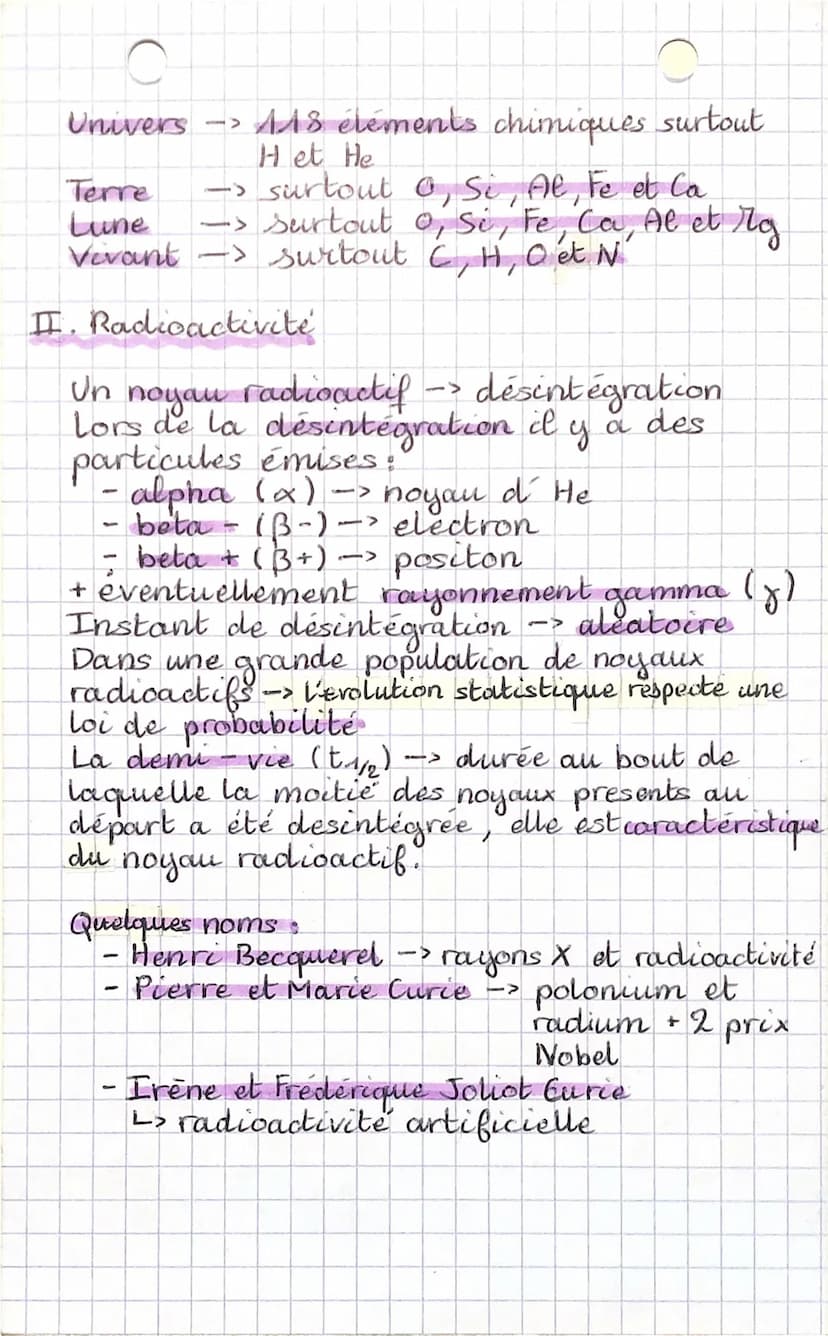 Univers -> 118 éléments chimiques surtout
H et He
Terre -> surtout O, Si, Al, Fe et Ca
Lune -> surtout O, Si, Fe, Ca, Al et Mg
Vivant -> surtout C, H, O et N
II. Radioactivité
Un noyau radioactif -> désintégration
Lors de la désintégration il y a des
particules émises :
- alpha (α) -> noyau d'He
- beta - (β-) -> electron
- beta + (β+) -> positon
+ éventuellement rayonnement gamma (γ)
Instant de désintégration -> aléatoire
Dans une grande population de noyaux
radioactifs -> l'évolution statistique respecte une
loi de probabilité
La demi-vie (t1/2) -> durée au bout de
laquelle la moitié des noyaux presents au
départ a été desintégrée, elle est caractéristique
du noyau radioactif.
Quelques noms :
- Henri Becquerel -> rayons X et radioactivité
- Pierre et Marie Curie -> polonium et
radium + 2 prix
Nobel
- Irène et Frédérique Joliot Curie
↳ radioactivité artificielle